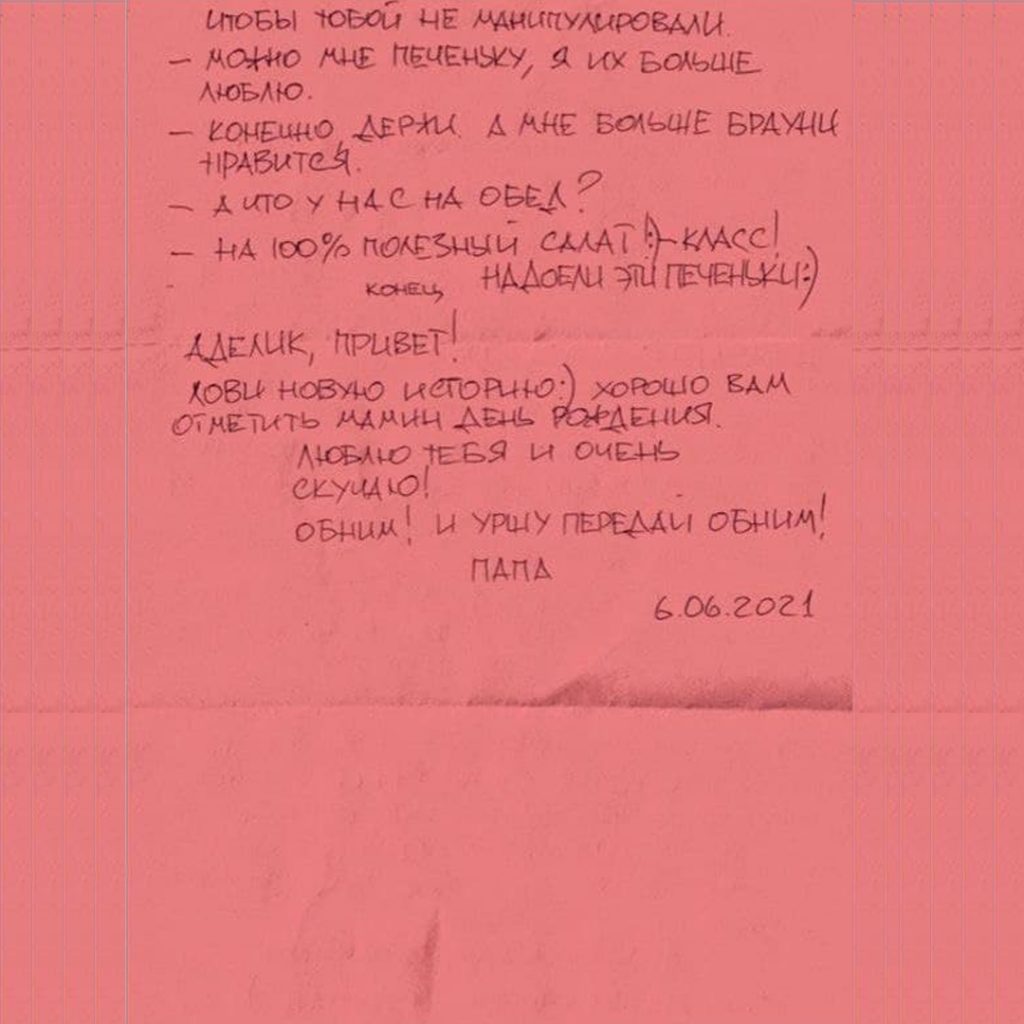 чтобы тобой не манипулировали.
– Можно мне печеньку, я их больше
люблю.
– Конечно, держи. А мне больше брауни
нравится.
– А что у нас на обед?
– На 100% полезный салат!:) – Класс!
Надоели эти печеньки:)
конец
Аделик, привет!
Лови новую историю:) Хорошо вам
отметить мамин день рождения.
Люблю тебя и очень
скучаю!
Обним! И Уршу передай обним!
Папа
6.06.2021